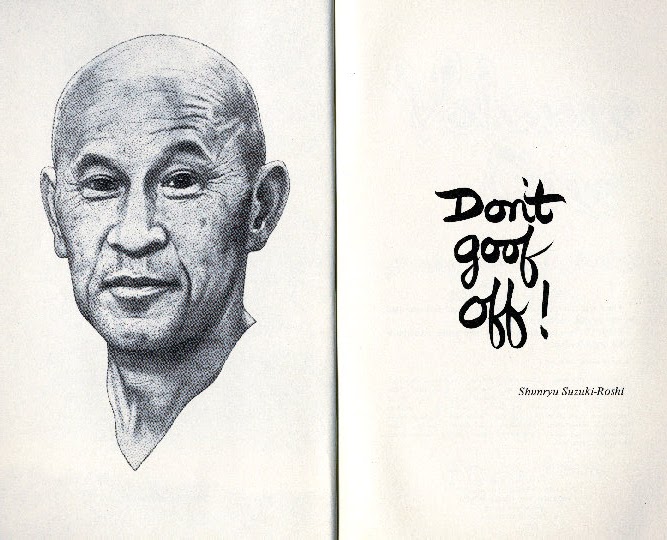 Don't
goof
off!
Shunryu Suzuki-Roshi